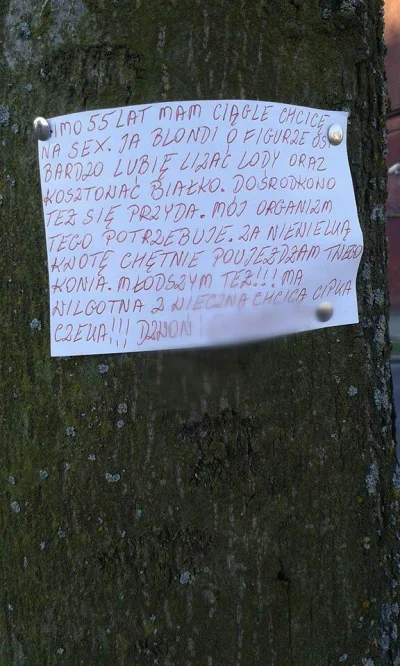 MIMO 55 LAT MAM CIĄGLE CHCICĘ
NA SEX. JA BLONDI O FIGURZE OSY
BARDZO LUBIĘ LIZAĆ LODY ORAZ
KOSZTOWAĆ BIAŁKO. DOŚRODKOWO
TEŻ SIĘ PRZYDA. MÓJ ORGANIZM
TEGO POTRZEBUJE. ZA NIEWIELKĄ
KWOTĘ CHĘTNIE POUJEŻDŻAM TWEGO
KONIA. MŁODSZYM TEŻ!!! MA
WILGOTNA Z WIECZNĄ CHCICĄ CIPKA
CZEKA!!! DZWOŃ!